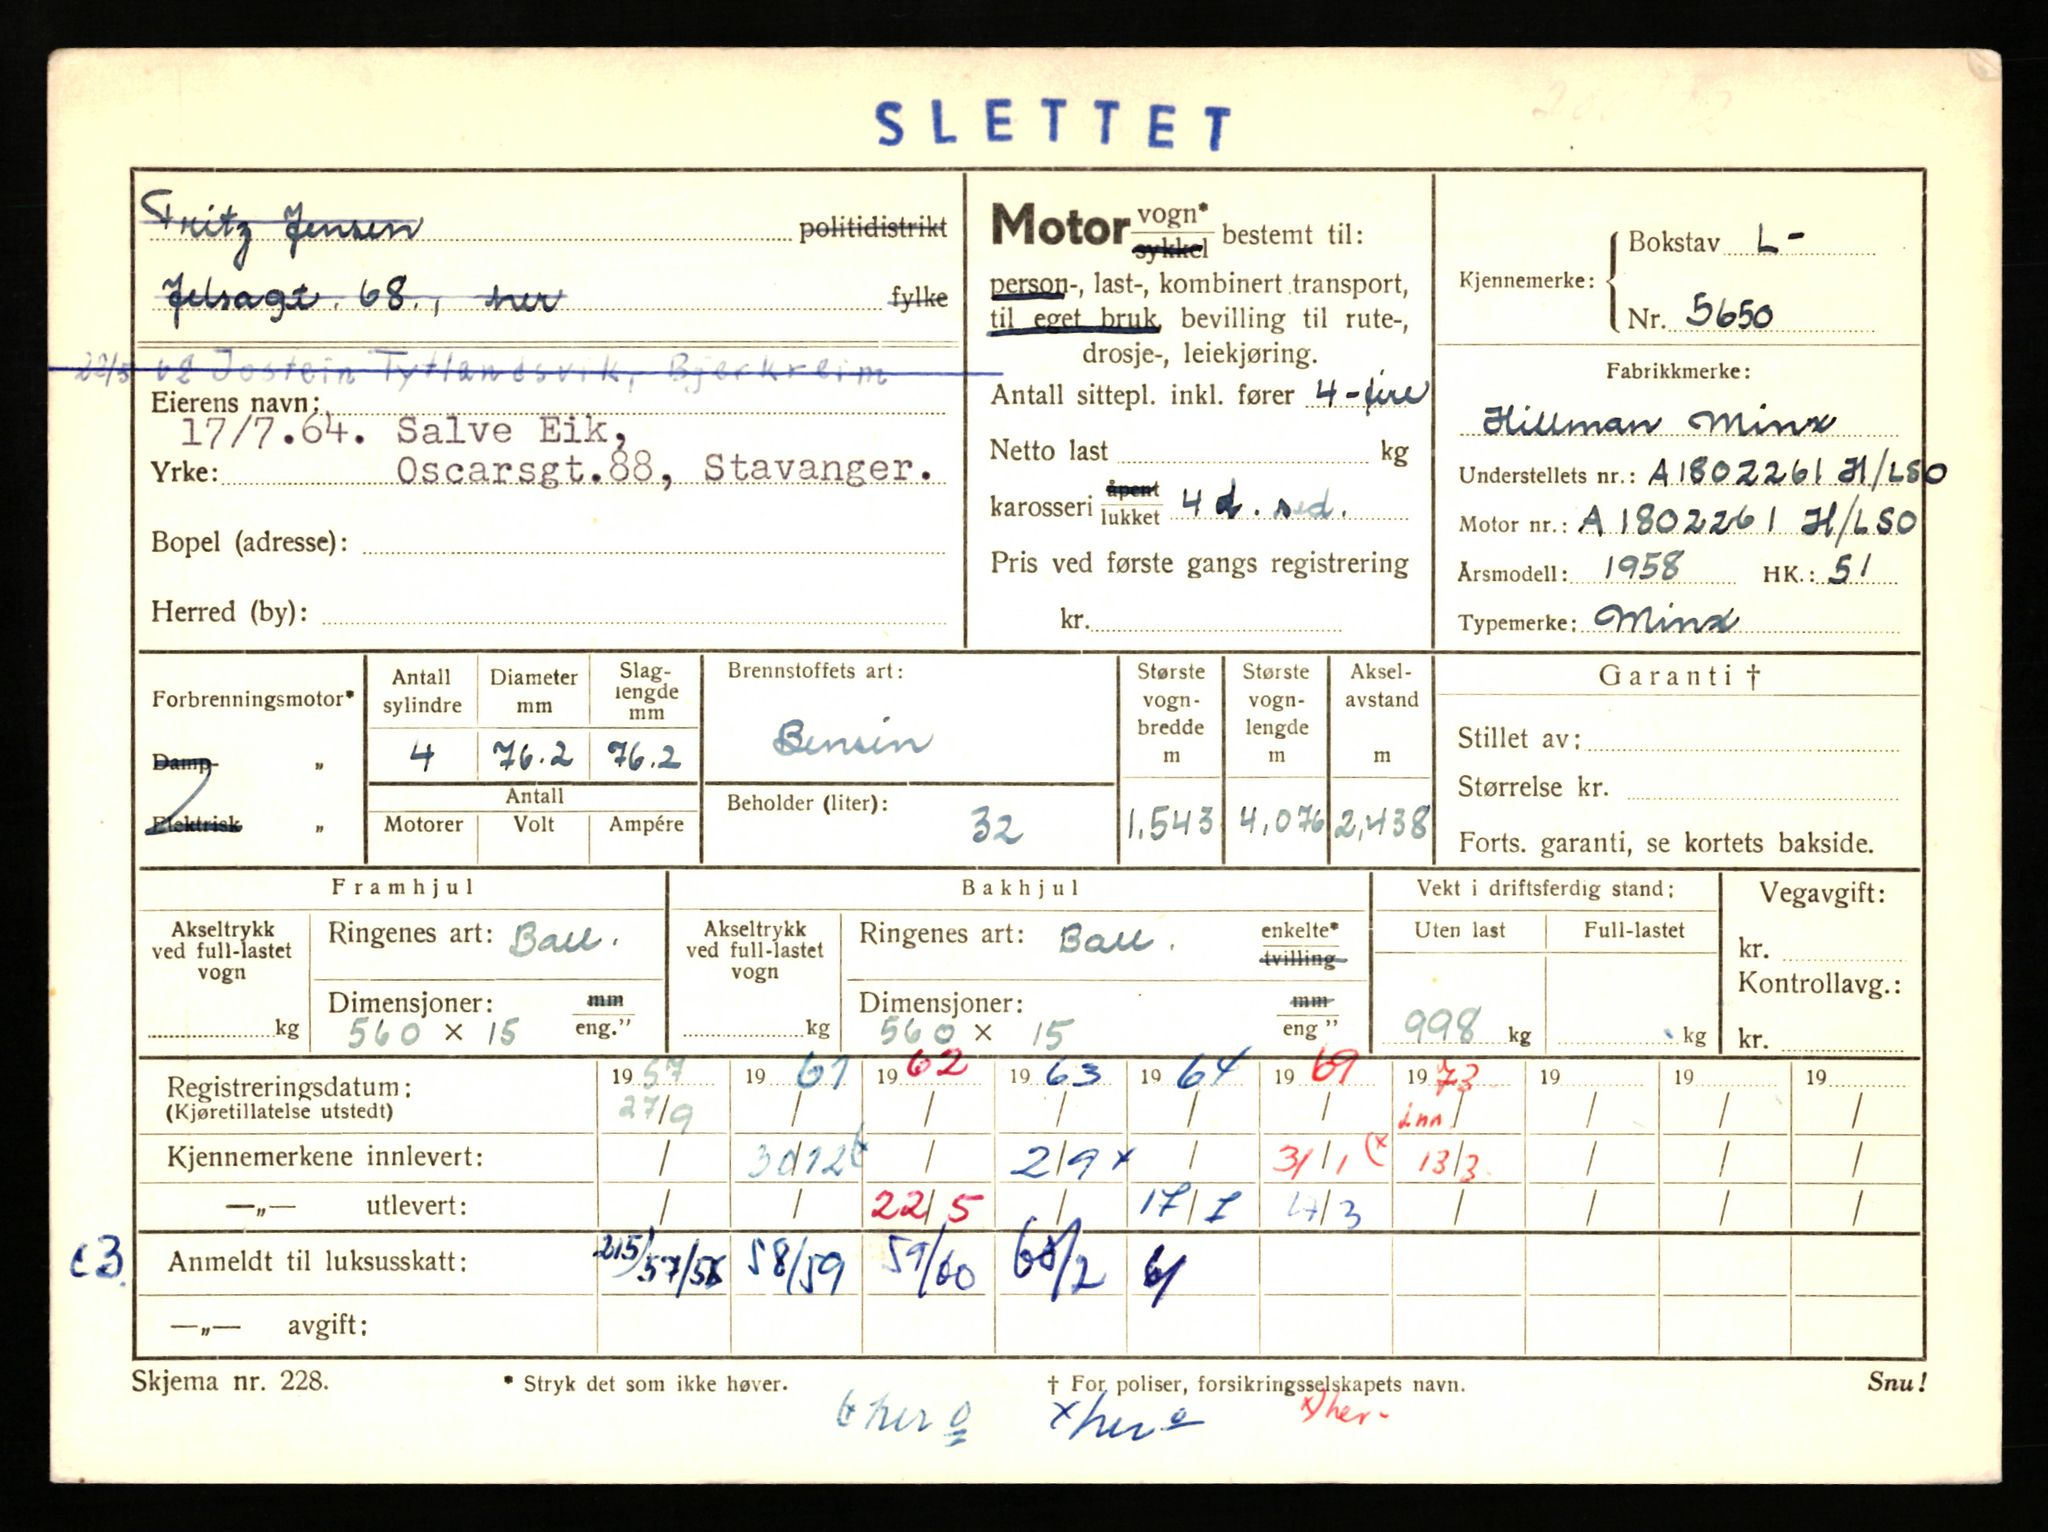 SLETTET
Fritz Jensen politidistrikt
Jelsagt. 68., her fylke
22/5 62 Jostein Tytlandsvik, Bjerkreim
Eierens navn:
17/7.64. Salve Eik,
Yrke: Oscarsgt.88, Stavanger.
Bopel (adresse):
Herred (by):
Motor vogn* sykkel bestemt til:
person-, last-, kombinert transport,
til eget bruk, bevilling til rute-,
drosje-, leiekjøring.
Antall sittepl. inkl. fører 4-fire
Netto last kg
karosseri åpent lukket 4 d. sed.
Pris ved første gangs registrering
kr.
Kjennemerke: Bokstav L-
Nr. 5650
Fabrikkmerke:
Hillman Minx
Understellets nr.: A1802261 H/LSO
Motor nr.: A 1802261 H/LSO
Årsmodell: 1958 HK.: 51
Typemerke: Minx
Forbrenningsmotor*
Damp „
Elektrisk „
Antall sylindre Diameter mm Slag-lengde mm
4 76.2 76.2
Antall
Motorer Volt Ampére
Brennstoffets art:
Bensin
Beholder (liter): 32
Største vogn-bredde m Største vogn-lengde m Aksel-avstand m
1.543 4,076 2,438
Garanti †
Stillet av:
Størrelse kr.
Forts. garanti, se kortets bakside.
Framhjul
Akseltrykk ved full-lastet vogn
kg
Ringenes art: Ball.
Dimensjoner: mm
560 × 15 eng.”
Bakhjul
Akseltrykk ved full-lastet vogn
kg
Ringenes art: Ball. enkelte* tvilling
Dimensjoner: mm
560 × 15 eng ”
Vekt i driftsferdig stand:
Uten last Full-lastet
998 kg kg
Vegavgift:
kr.
Kontrollavg.:
kr.
Registreringsdatum: 19 57 19 61 19 62 19 63 19 64 19 69 19 73 19 19 19
(Kjøretillatelse utstedt) 27/9 / / / / / inn / / / /
Kjennemerkene innlevert: / 30/12 / 2/9 x / 31/1 (x 13/3 / / /
—„— utlevert: / / 22/5 / 17/7 17/3 / / / /
c3. Anmeldt til luksusskatt: 215/57/58 58/59 59/60 60/2 61
—„— avgift:
Skjema nr. 228. * Stryk det som ikke høver. † For poliser, forsikringsselskapets navn. Snu!
her o x her o x) her-